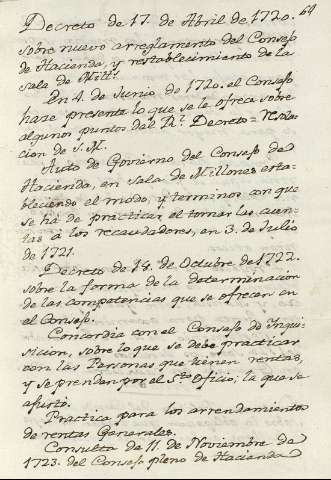 64
Decreto de 17. de Abril de 1720.
sobre nuevo arreglamento del Consejo
de Hacienda, y restablecimiento de la
Sala de Mill.s
En 4. de Junio de 1720. el Consejo
haze presente lo que se le ofrece sobre
algunos puntos del R.l Decreto = Resolu-
cion de S. M.
Auto de Govierno del Consejo de
Hacienda, en Sala de Millones esta-
bleciendo el modo, y terminos con que
se ha de practicar el tomar las cuen-
tas à los recaudadores, en 3. de Julio
de 1721.
Decreto de 14. de Octubre de 1722.
sobre la forma de la determinacion
de las competencias que se ofrecen en
el Consejo.
Concordia con el Consejo de Inqui-
sicion, sobre lo que se debe practicar
con las Personas que tienen rentas,
y se prenden por el S.to Oficio, la que se
ajustò.
Practica para los arrendamientos
de rentas Generales.
Consulta de 11. de Noviembre de
1723. del Consejo pleno de Hacienda